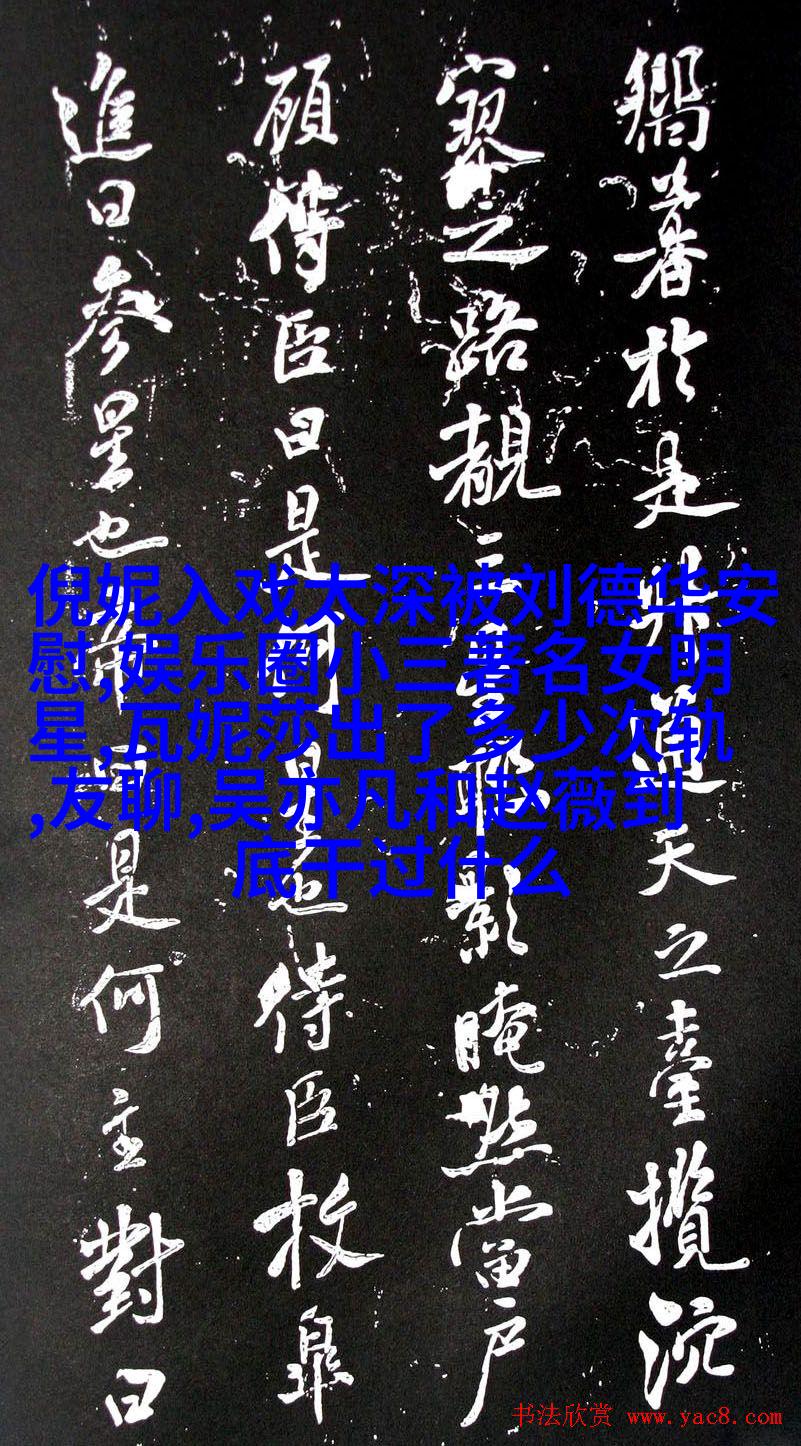 於是通天之臺攬沉
寥之路覩三影晻然當户
顧侍臣曰是何星也侍臣枚皋
進曰參星也帝曰是何主對曰
倪妮入戏太深被刘德华安
慰,娱乐圈小三著名女明
星,瓦妮莎出了多少次轨
,友聊,吴亦凡和赵薇到
底干过什么
书法欣赏 www.yac8.com